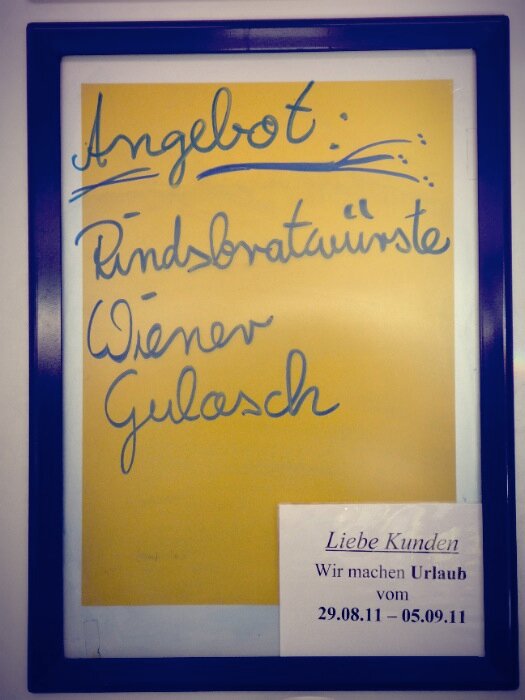 Angebot:
Rindsbratwürste
Wiener
Gulasch
Liebe Kunden
Wir machen Urlaub
vom
29.08.11 – 05.09.11